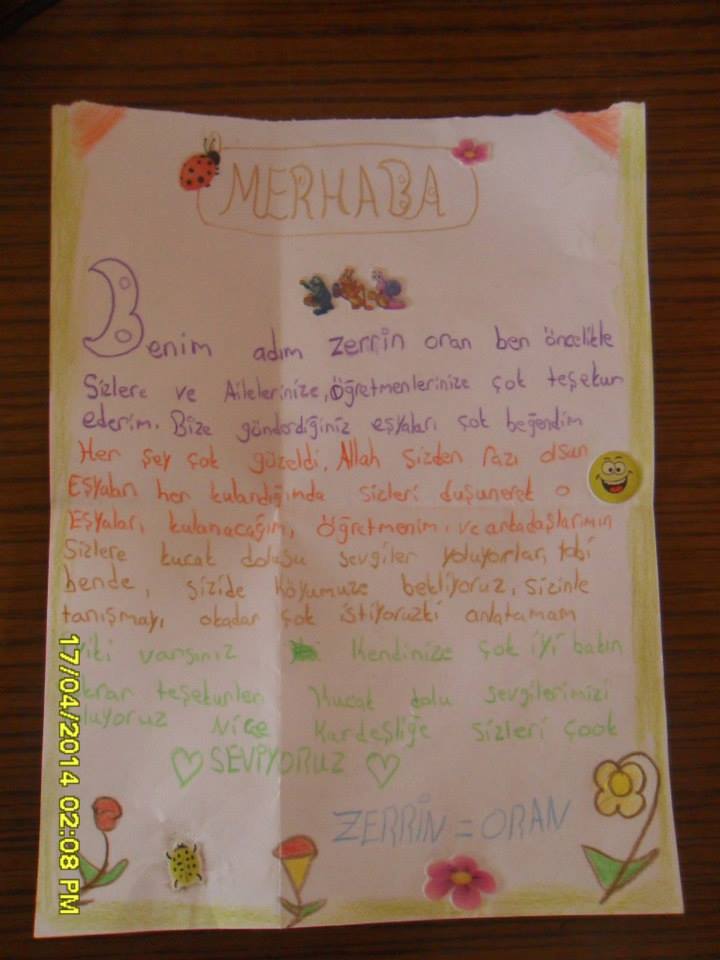 MERHABA
Benim adım Zerrin oran ben öncelikle
Sizlere ve Ailelerinize, öğretmenlerinize çok teşekur
ederim. Bize gönderdiğiniz eşyaları çok beğendim
Her şey çok güzeldi. Allah sizden razı olsun
Eşyaları her kulandığımda sizleri duşunerek o
Eşyaları kulanacağım, öğretmenim, ve arkadaşlarımın
Sizlere kucak dolusu sevgiler yoluyorlar, tabi
bende, sizide köyumuze bekliyoruz, sizinle
tanışmayı okadar çok istiyoruzki anlatamam
iyiki varsınız Kendinize çok iyi bakın
krar teşekurler Kucak dolu sevgilerimizi
oluyoruz Nice Kardeşliğe sizleri çook
SEVİYORUZ
ZERRİN = ORAN
17/04/2014 02:08 PM